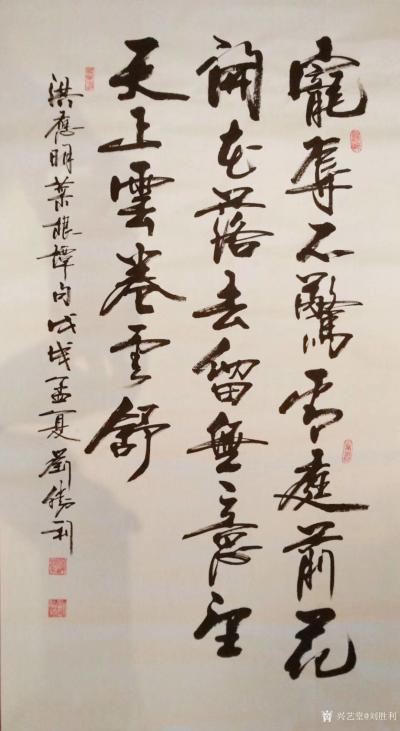 寵辱不驚看庭前花
開花落去留無意望
天上雲卷雲舒
洪應明菜根譚句戊戌孟夏劉勝利
兴艺堂@刘胜利